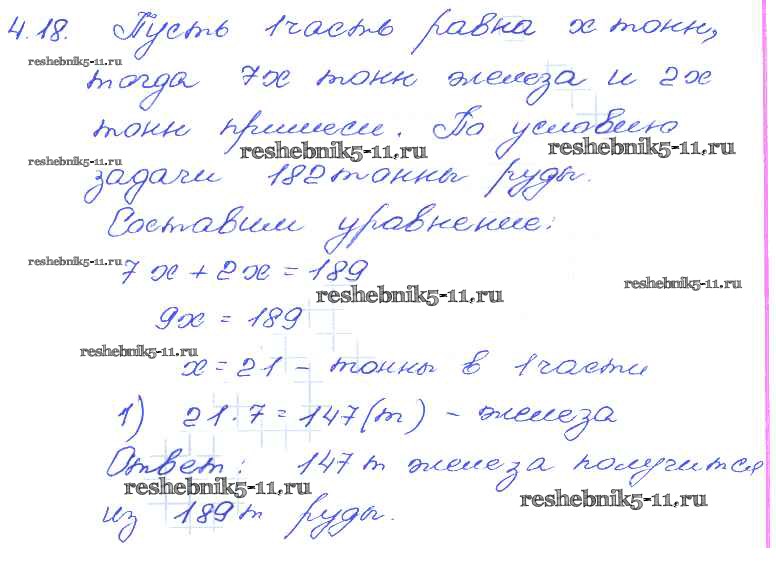 4.18. Пусть 1 часть равна x тонн,
reshebnik5-11.ru
тогда 7x тонн железа и 2x
тонн примеси. По условию
reshebnik5-11.ru
reshebnik5-11.ru
reshebnik5-11.ru
задачи 182 тонны руды.
Составим уравнение:
reshebnik5-11.ru
7x + 2x = 189
reshebnik5-11.ru
reshebnik5-11.ru
9x = 189
reshebnik5-11.ru
x = 21 – тонны в 1 части
1) 21 · 7 = 147 (т) – железа
Ответ: 147 т железа получится
reshebnik5-11.ru
reshebnik5-11.ru
из 189 т руды.